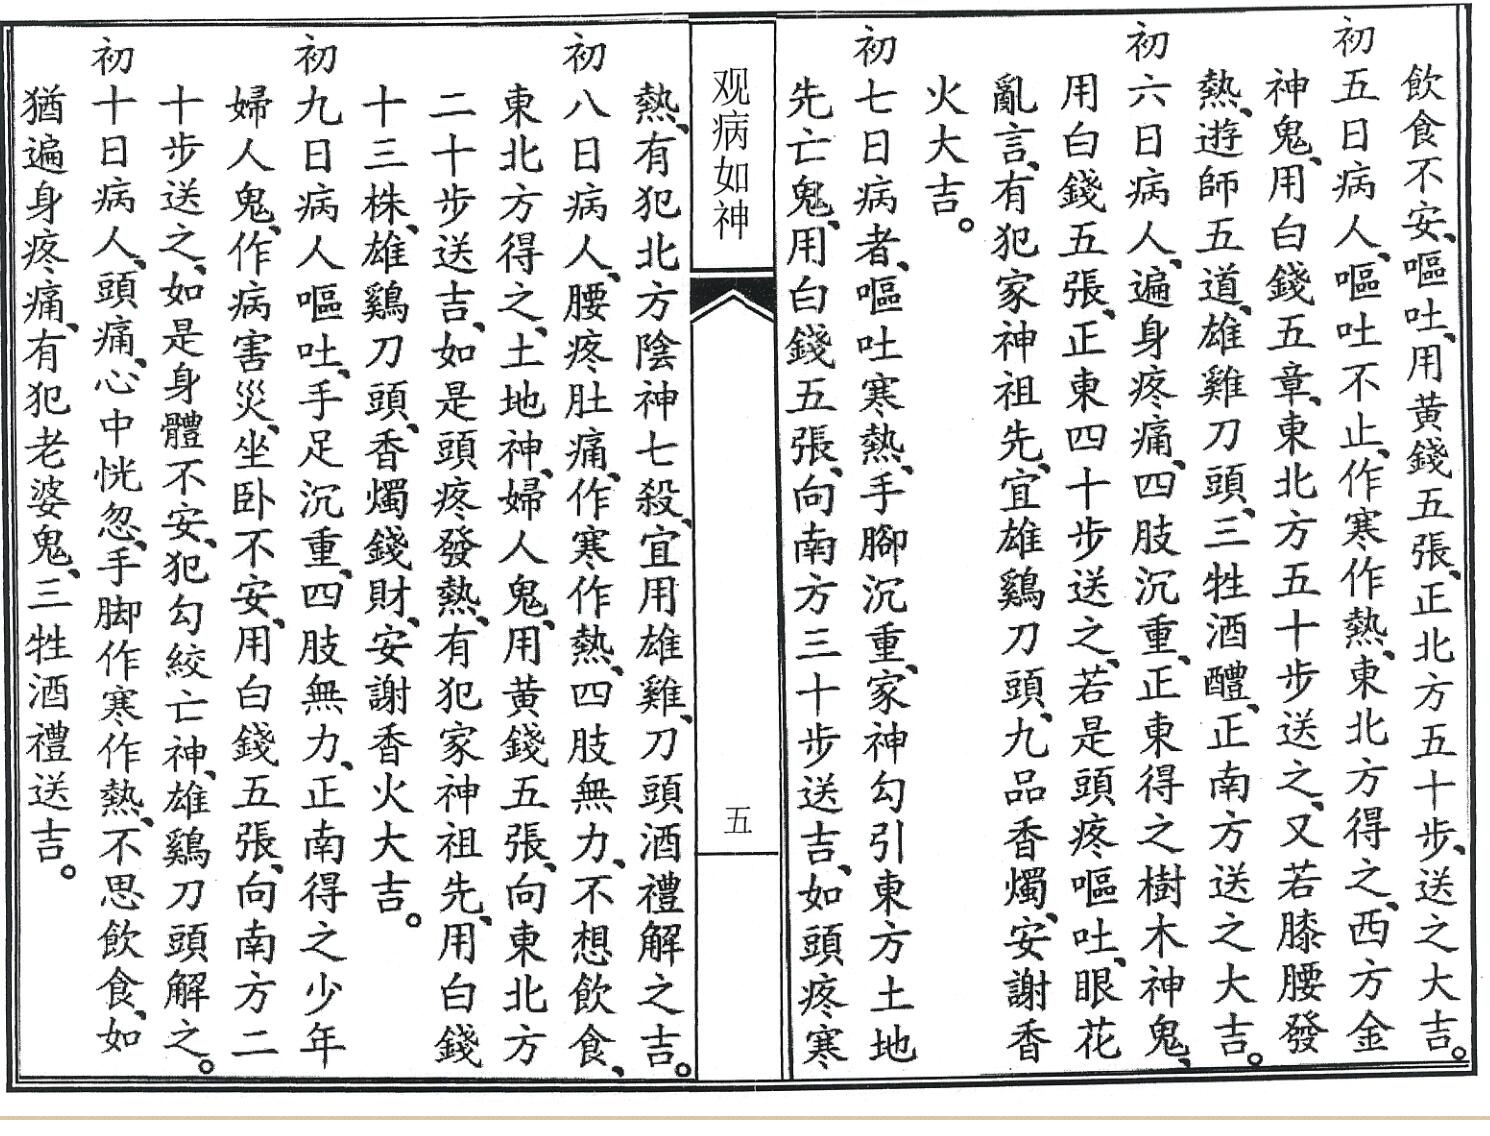 飲食不安、嘔吐、用黃錢五張、正北方五十步、送之大吉。
初五日病人、嘔吐不止、作寒作熱、東北方得之、西方金
神鬼、用白錢五章、東北方五十步送之、又若膝腰發
熱、遊師五道、雄雞刀頭、三牲酒醴、正南方送之大吉。
初六日病人、遍身疼痛、四肢沉重、正東得之樹木神鬼、
用白錢五張、正東四十步送之、若是頭疼嘔吐、眼花
亂言、有犯家神祖先、宜雄鷄刀頭、九品香燭、安謝香
火大吉。
初七日病者、嘔吐寒熱、手腳沉重、家神勾引東方土地
先亡鬼、用白錢五張、向南方三十步送吉、如頭疼寒
观病如神
五
熱、有犯北方陰神七殺、宜用雄雞、刀頭酒禮解之吉。
初八日病人、腰疼肚痛、作寒作熱、四肢無力、不想飲食、
東北方得之、土地神、婦人鬼、用黃錢五張、向東北方
二十步送吉、如是頭疼發熱、有犯家神祖先、用白錢
十三株、雄鷄刀頭、香燭錢財、安謝香火大吉。
初九日病人嘔吐、手足沉重、四肢無力、正南得之少年
婦人鬼、作病害災、坐卧不安、用白錢五張、向南方二
十步送之、如是身體不安、犯勾絞亡神、雄鷄刀頭解之。
初十日病人、頭痛、心中恍忽、手脚作寒作熱、不思飲食、如
猶遍身疼痛、有犯老婆鬼、三牲酒禮送吉。